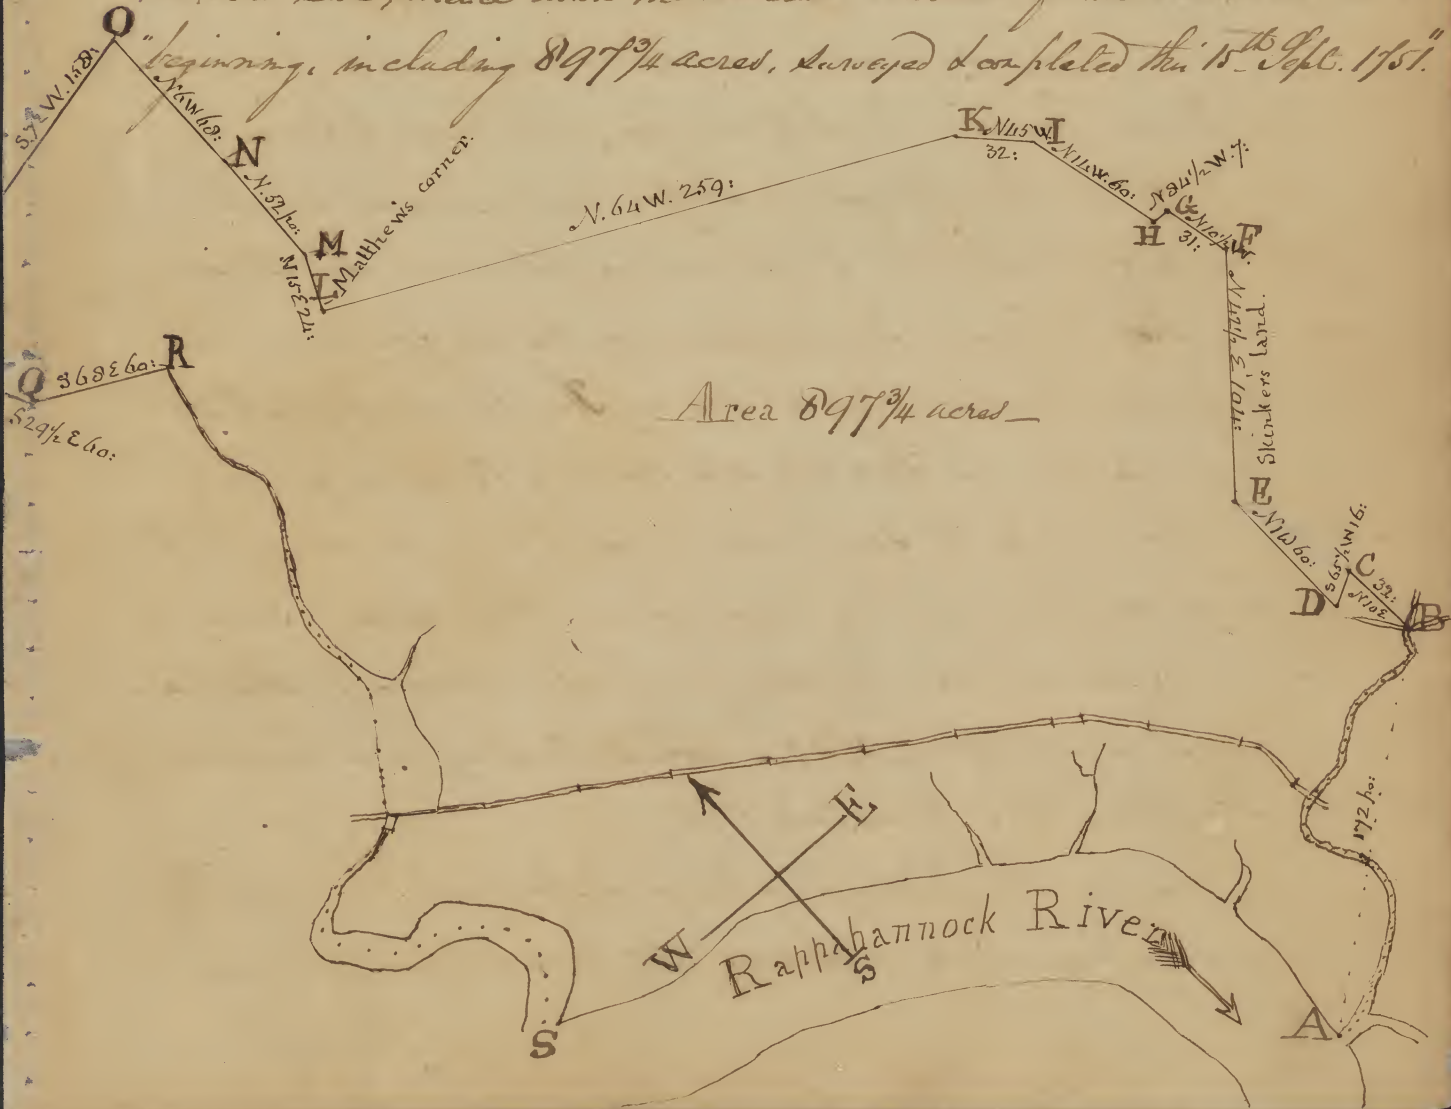 "beginning, including 897¾ acres, surveyed & completed this 15th Sept. 1751."
O
S 7 E W. 158:
N 6 W 68:
N
N. 52 po:
M
N 15 E 24:
L
Matthew's corner.
N. 64 W. 259:
K
N 45 W.
32:
I
N 14 W. 60:
H
N 84½ W. 7:
G
N 10½ W.
31:
F
N 47½ E 104:
Skinkers land.
E
N 1 W 60:
D
S 65½ W 16:
C
32:
N 10 E
B
R
S 68 E 60:
Q
S 29½ E 60:
Area 897¾ acres
172 po:
E
W
S
Rappahannock River
S
A